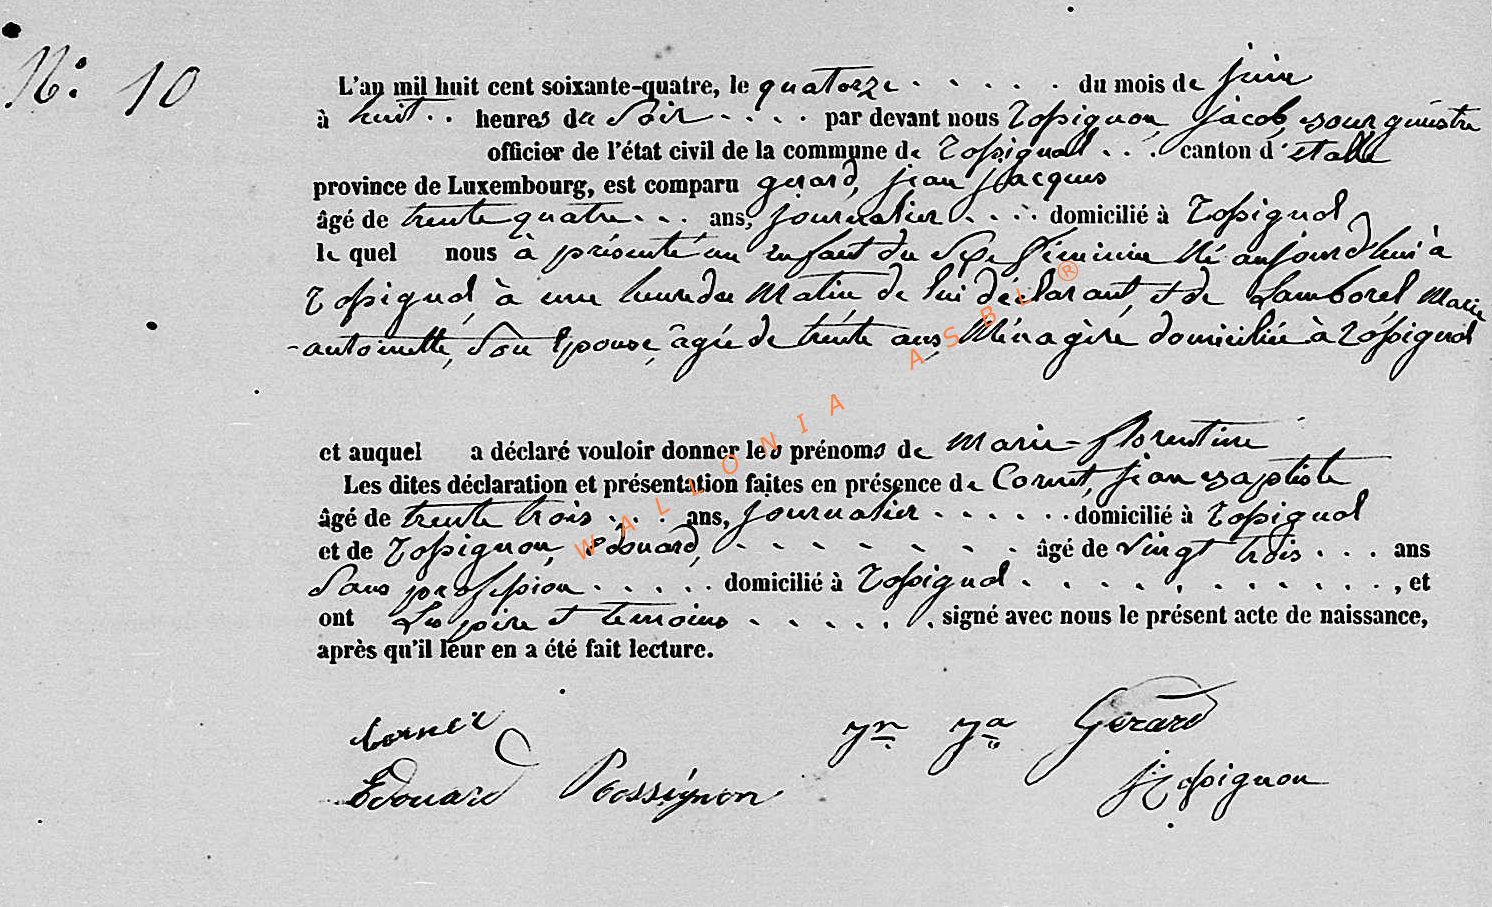 N° 10
L'an mil huit cent soixante-quatre, le quatorze . . . . . du mois de juin
à huit . . heures du soir . . . . par devant nous Rossignon, Jacob, bourguinstre
officier de l'état civil de la commune de Rossignol . . . canton d'étalle
province de Luxembourg, est comparu gerard, jean jacques
âgé de trente quatre . . . ans, journalier . . . . domicilié à Rossignol,
le quel nous à présenté un enfant du sexe féminin Né aujourd'hui à
Rossignol, à une heure du Matin de lui déclarant, et de Lamborel Marie
-antoinette, son Epouse, âgée de trente ans, Ménagère domiciliée à Rossignol
et auquel a déclaré vouloir donner les prénoms de Marie-florentine
Les dites déclaration et présentation faites en présence de Cornet, jean baptiste
âgé de trente trois . . . ans, journalier . . . . . . domicilié à Rossignol
et de Rossignon, édouard, . . . . . . . . âgé de vingt trois . . . ans
sans profession . . . . . domicilié à Rossignol . . . . . . . . . . . . , et
ont Les père et témoins . . . . . . signé avec nous le présent acte de naissance,
après qu'il leur en a été fait lecture.
Cornet
Jn Ja Gérard
Edouard Rossignon
J Rossignon
WALLONIA ASBL®